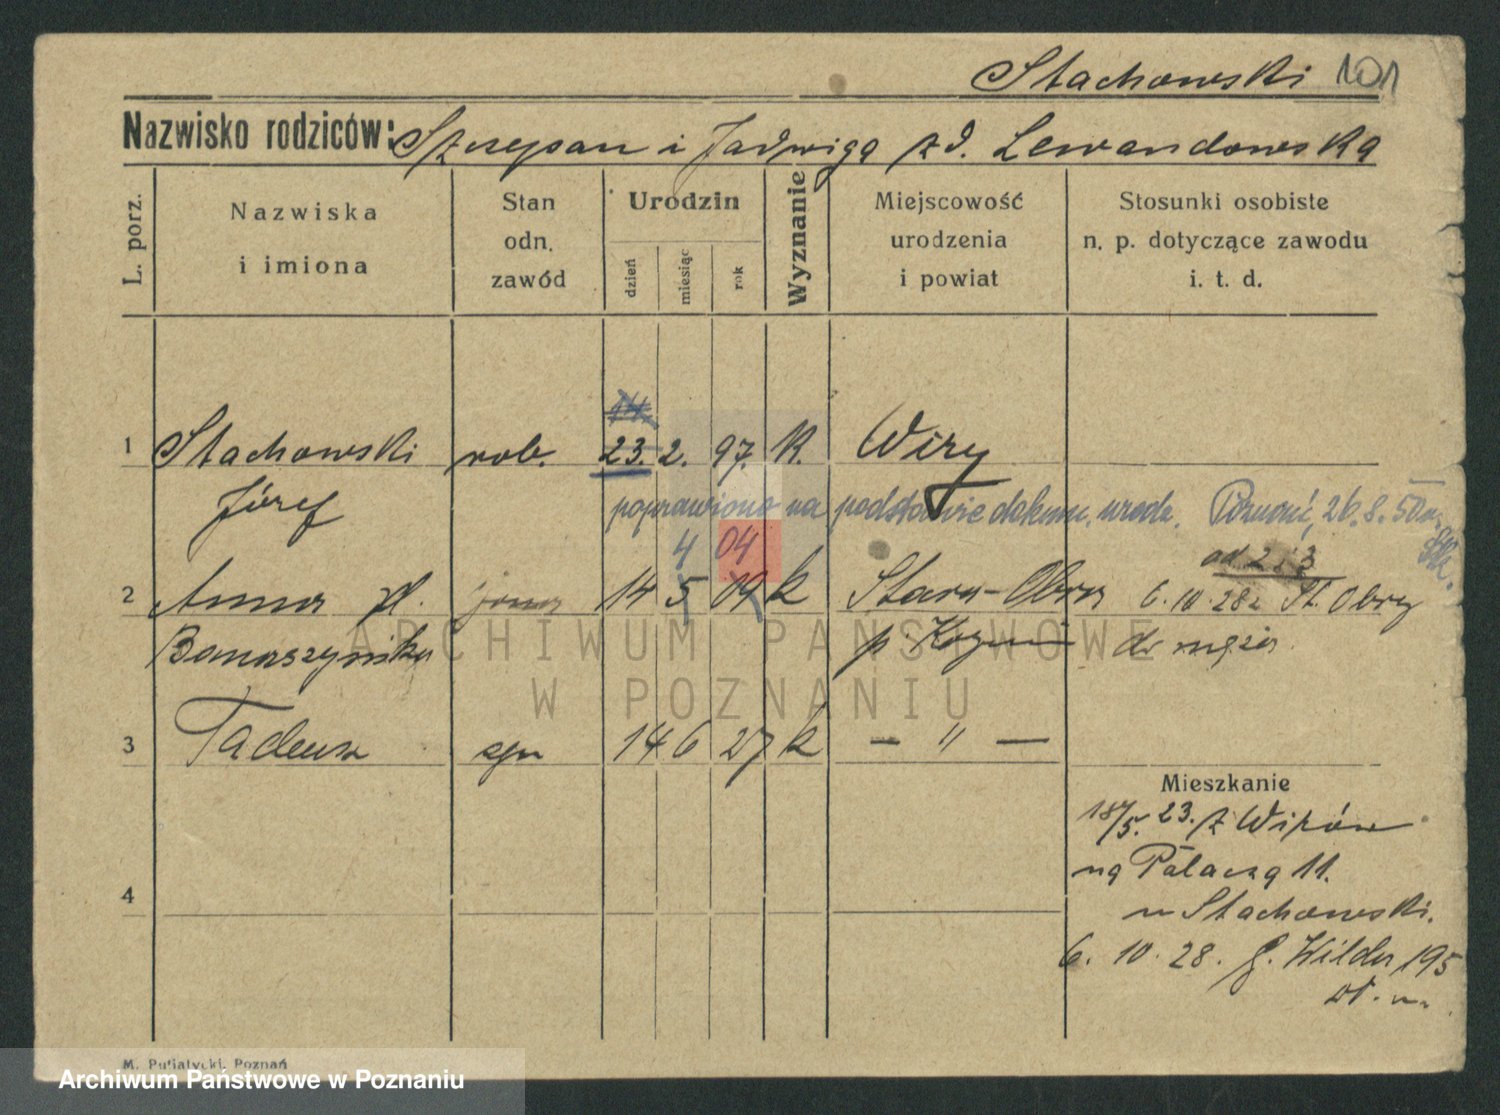 Stachowski 101
Nazwisko rodziców: Szczepan i Jadwiga zd. Lewandowska
L. porz.
Nazwiska
i imiona
Stan
odn.
zawód
Urodzin
dzień
miesiąc
rok
Wyznanie
Miejscowość
urodzenia
i powiat
Stosunki osobiste
n. p. dotyczące zawodu
i. t. d.
14
1 Stachowski rob. 23. 2. 97. K. Wiry
Józef poprawiono na podstawie dokum. urodz. Poznań, 26.8.50
4 04 od 2 i 3
2 Anna zd. żona 14 5 09 k Stara-Obra 6.10.28 z St. Obry
Banaszyńska p. Koźmin do męża.
3 Tadeusz syn 14 6 27 k — " —
Mieszkanie
18/5. 23. z Wirów
na Palacza 11.
4
u Stachowski.
6. 10. 28. G. Wilda 195
M. Putiatycki, Poznań
ARCHIWUM PAŃSTWOWE
W POZNANIU
Archiwum Państwowe w Poznaniu